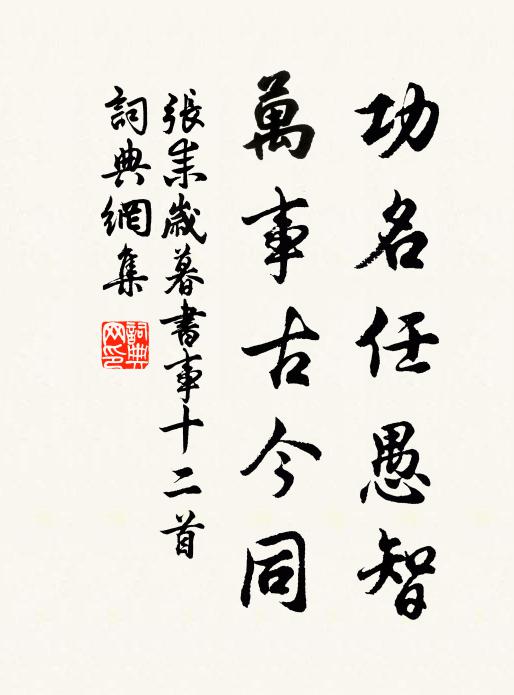 功名任愚智
萬事古今同
張耒歲暮書事十二首
詞典網集
詞典网印